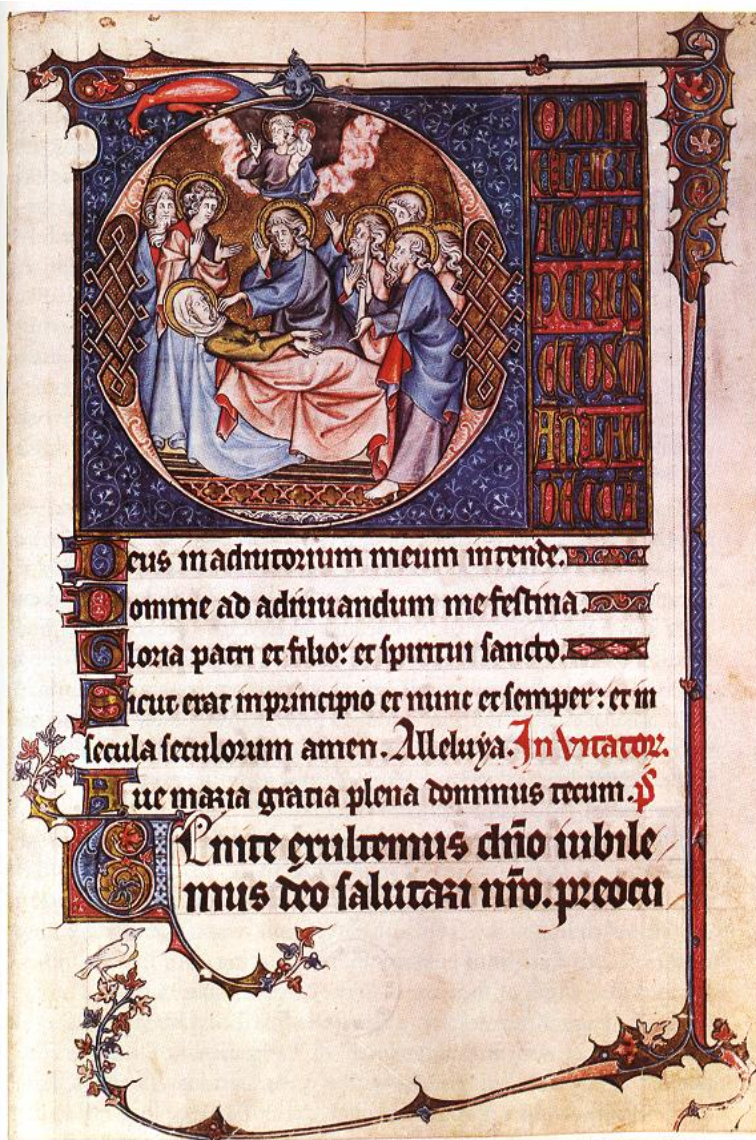 DOMIN
E LABI
A MEA A
PERIES
ET OS M
Deus in adiutorium meum intende.
Domine ad adiuuandum me festina.
Gloria patri et filio: et spiritui sancto.
Sicut erat in principio et nunc et semper: et in
secula seculorum amen. Alleluya. Inuitator.
Aue maria gratia plena dominus tecum. ps
Uenite exultemus dño iubile
mus deo salutari nr̃o. preocu